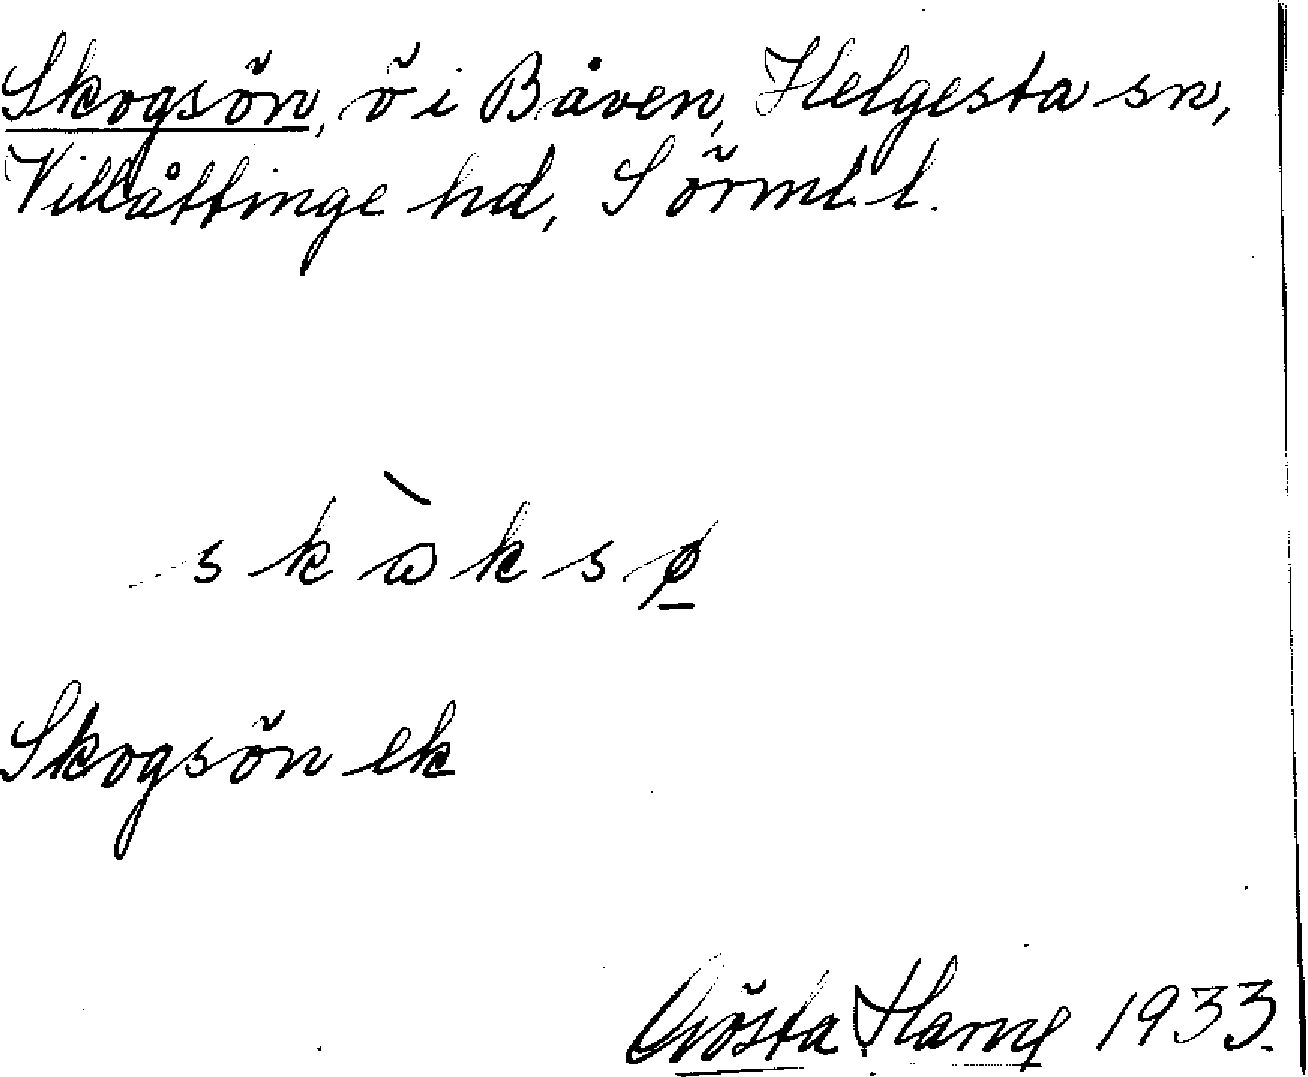 Skogsön, ö i Båven, Helgesta sn,
Villåttinge hd, Sörml. l.
skòksø̱
Skogsön ek
Gösta Harng 1933.